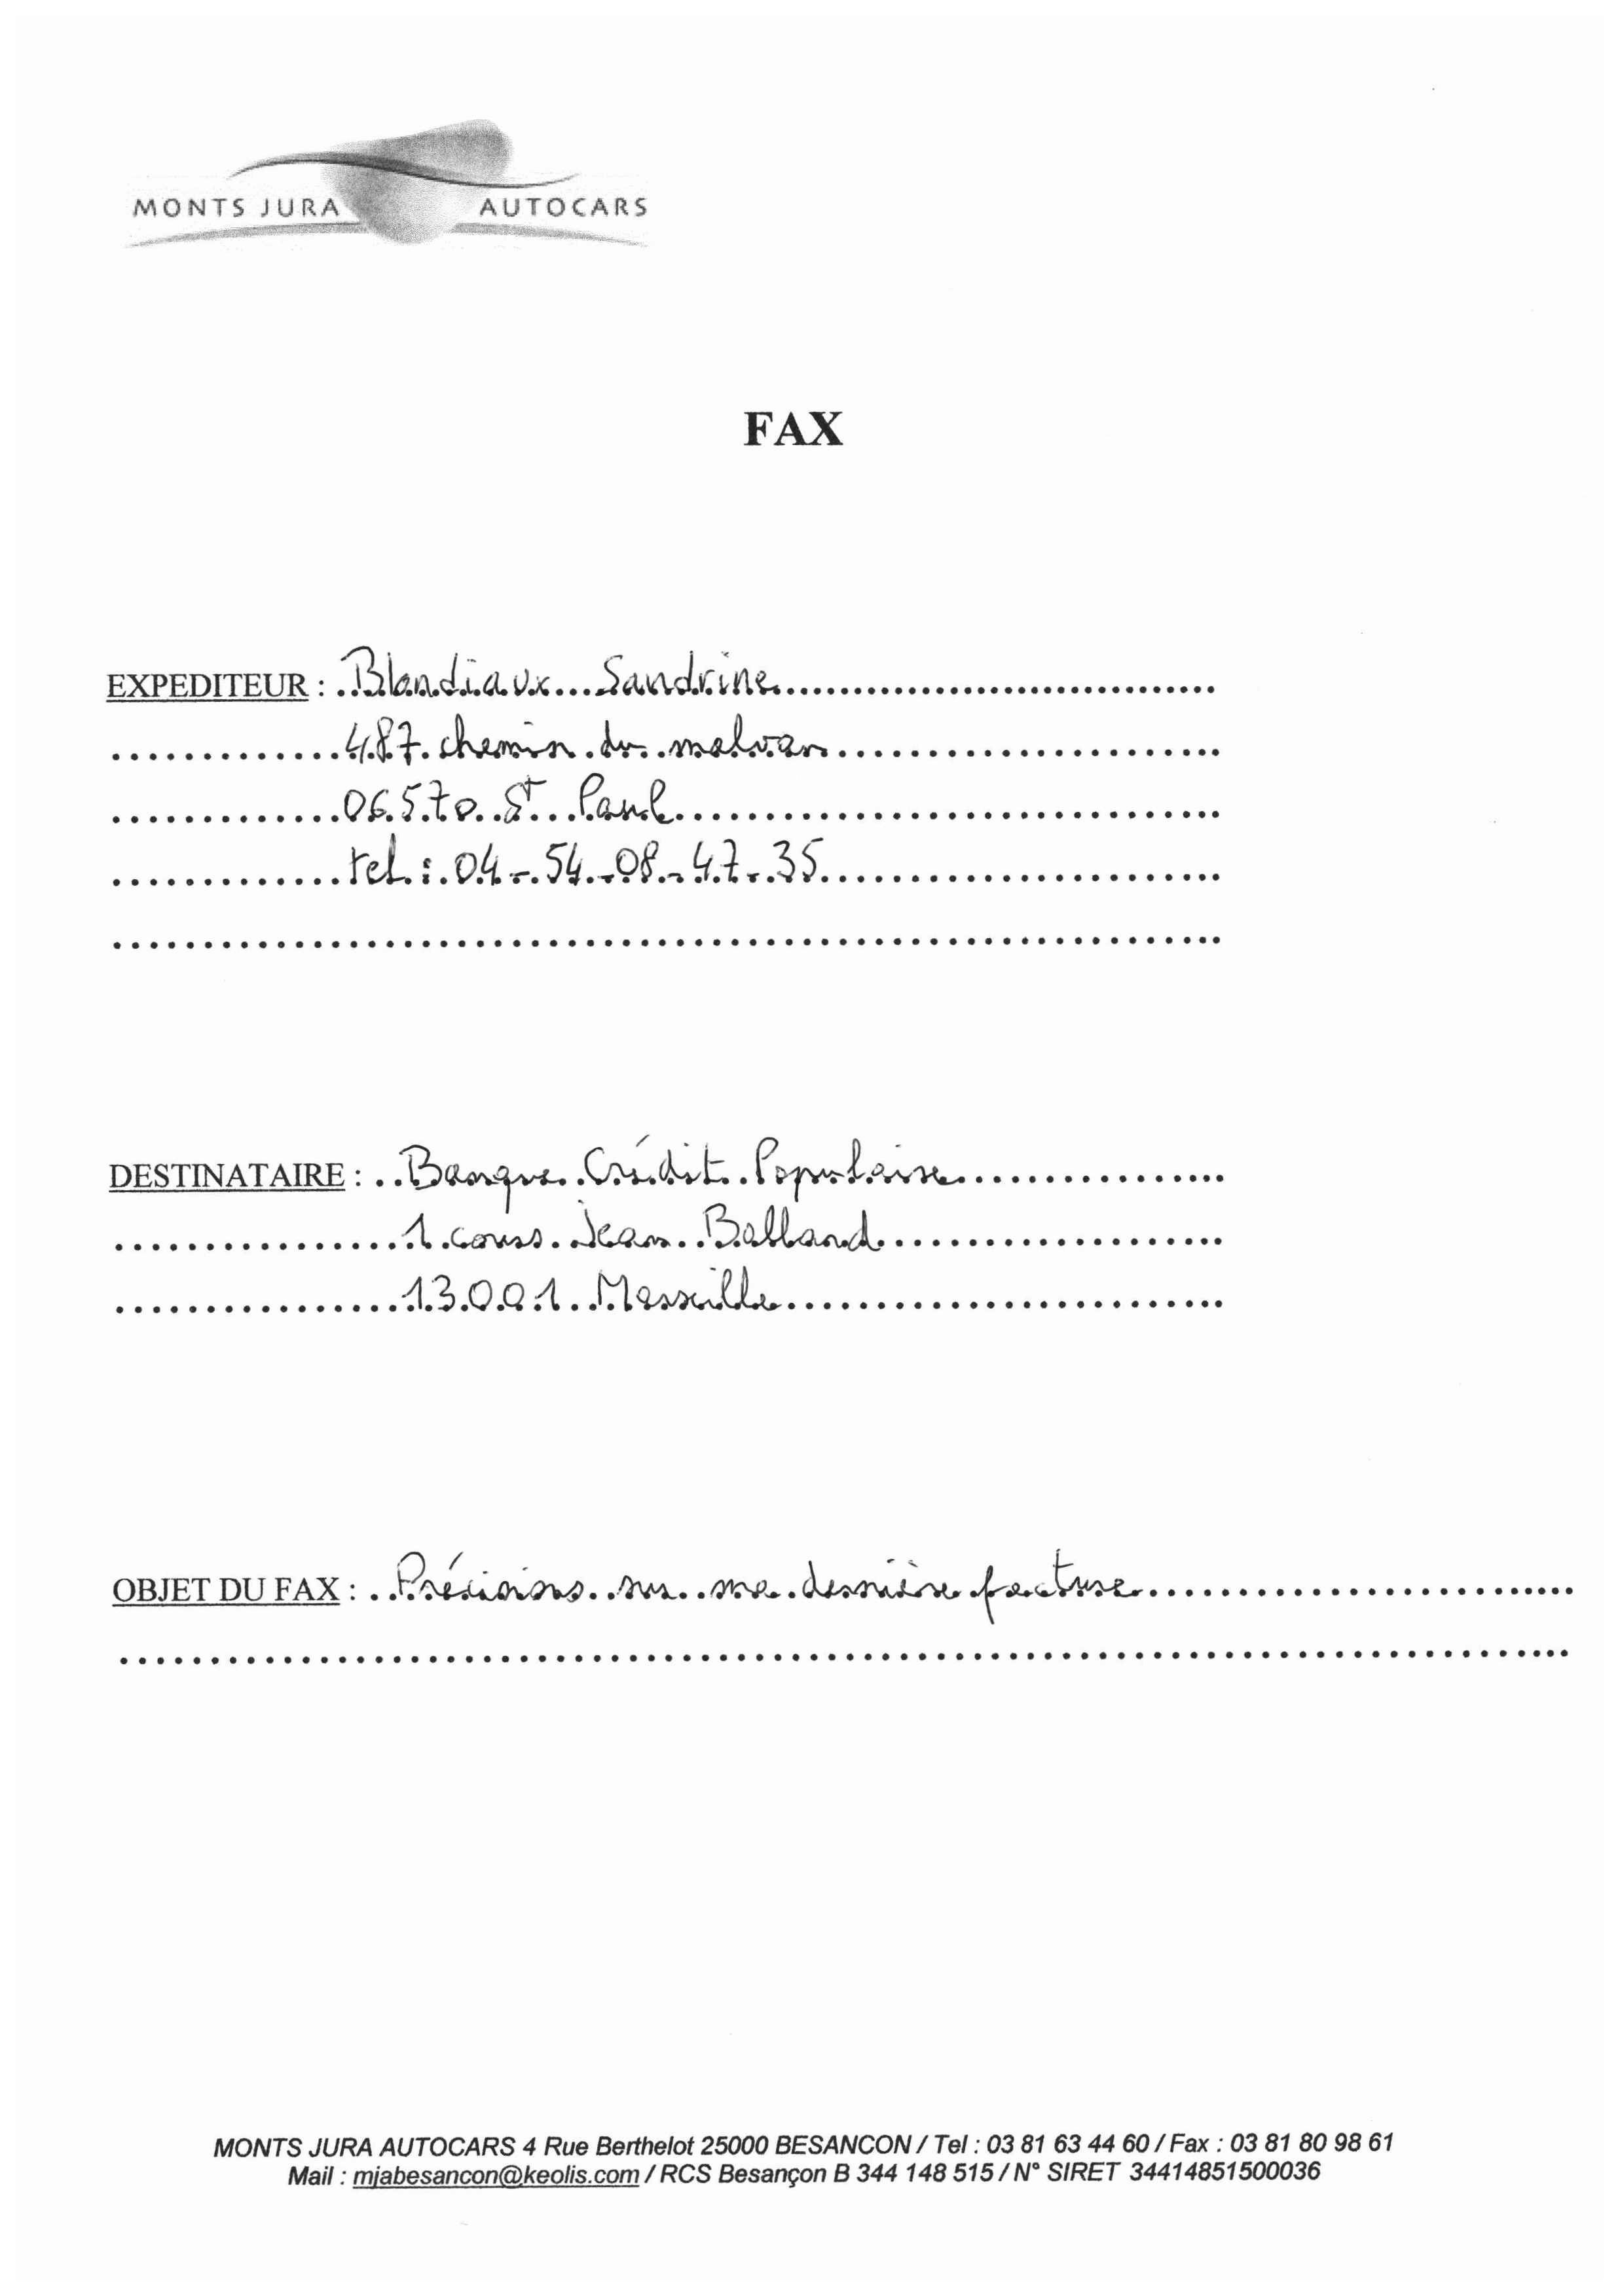 MONTS JURA AUTOCARS
FAX
EXPEDITEUR : Blandiaux Sandrine
487 chemin du malvan
06570 St Paul
tel : 04-54-08-47-35
DESTINATAIRE : Banque Crédit Populaire
1 cours Jean Balland
13001 Marseille
OBJET DU FAX : Précisions sur ma dernière facture
MONTS JURA AUTOCARS 4 Rue Berthelot 25000 BESANCON / Tel : 03 81 63 44 60 / Fax : 03 81 80 98 61
Mail : mjabesancon@keolis.com / RCS Besançon B 344 148 515 / N° SIRET 34414851500036